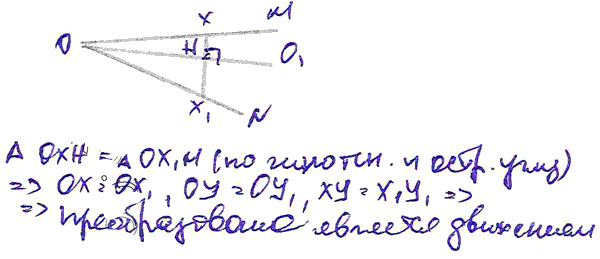 X M
O H O₁
X₁ N
Δ OXH = Δ OX₁H (по гипотен. и остр. углу)
=> OX = OX₁, OY = OY₁, XY = X₁Y₁ =>
=> преобразование является движением